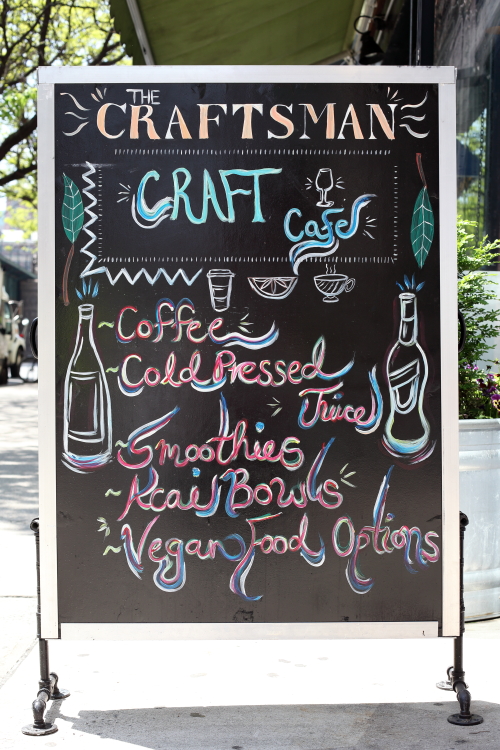 THE
CRAFTSMAN
CRAFT
Cafe
~Coffee
~Cold Pressed
Juice
~Smoothies
~Acai Bowls
~Vegan Food Options